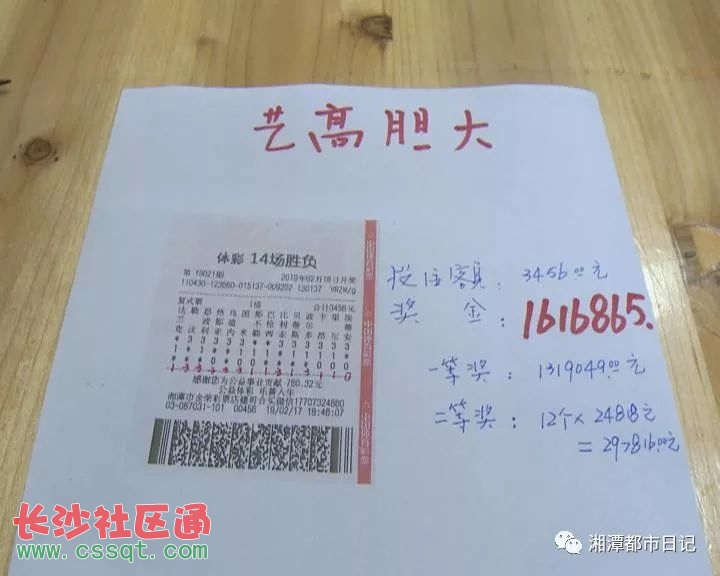 艺高胆大
体彩 14场胜负
第 19021期 2019年02月18日开奖
110430-123660-015137-009202 130137 VRZM/Q
复式票 1倍 合计10456元
感谢您为公益事业贡献 760.32元
公益体彩 乐善人生
湘潭市金荣彩票店建哥合买微信17707324660
03-087031-101 00456 19/02/17 18:46:07
中国体育彩票
投注金额: 3456.00元
奖 金: 1616865.
一等奖: 1319049.00元
二等奖: 12个×24818元
=297816.00元
长沙社区通
www.cssqt.com
湘潭都市日记